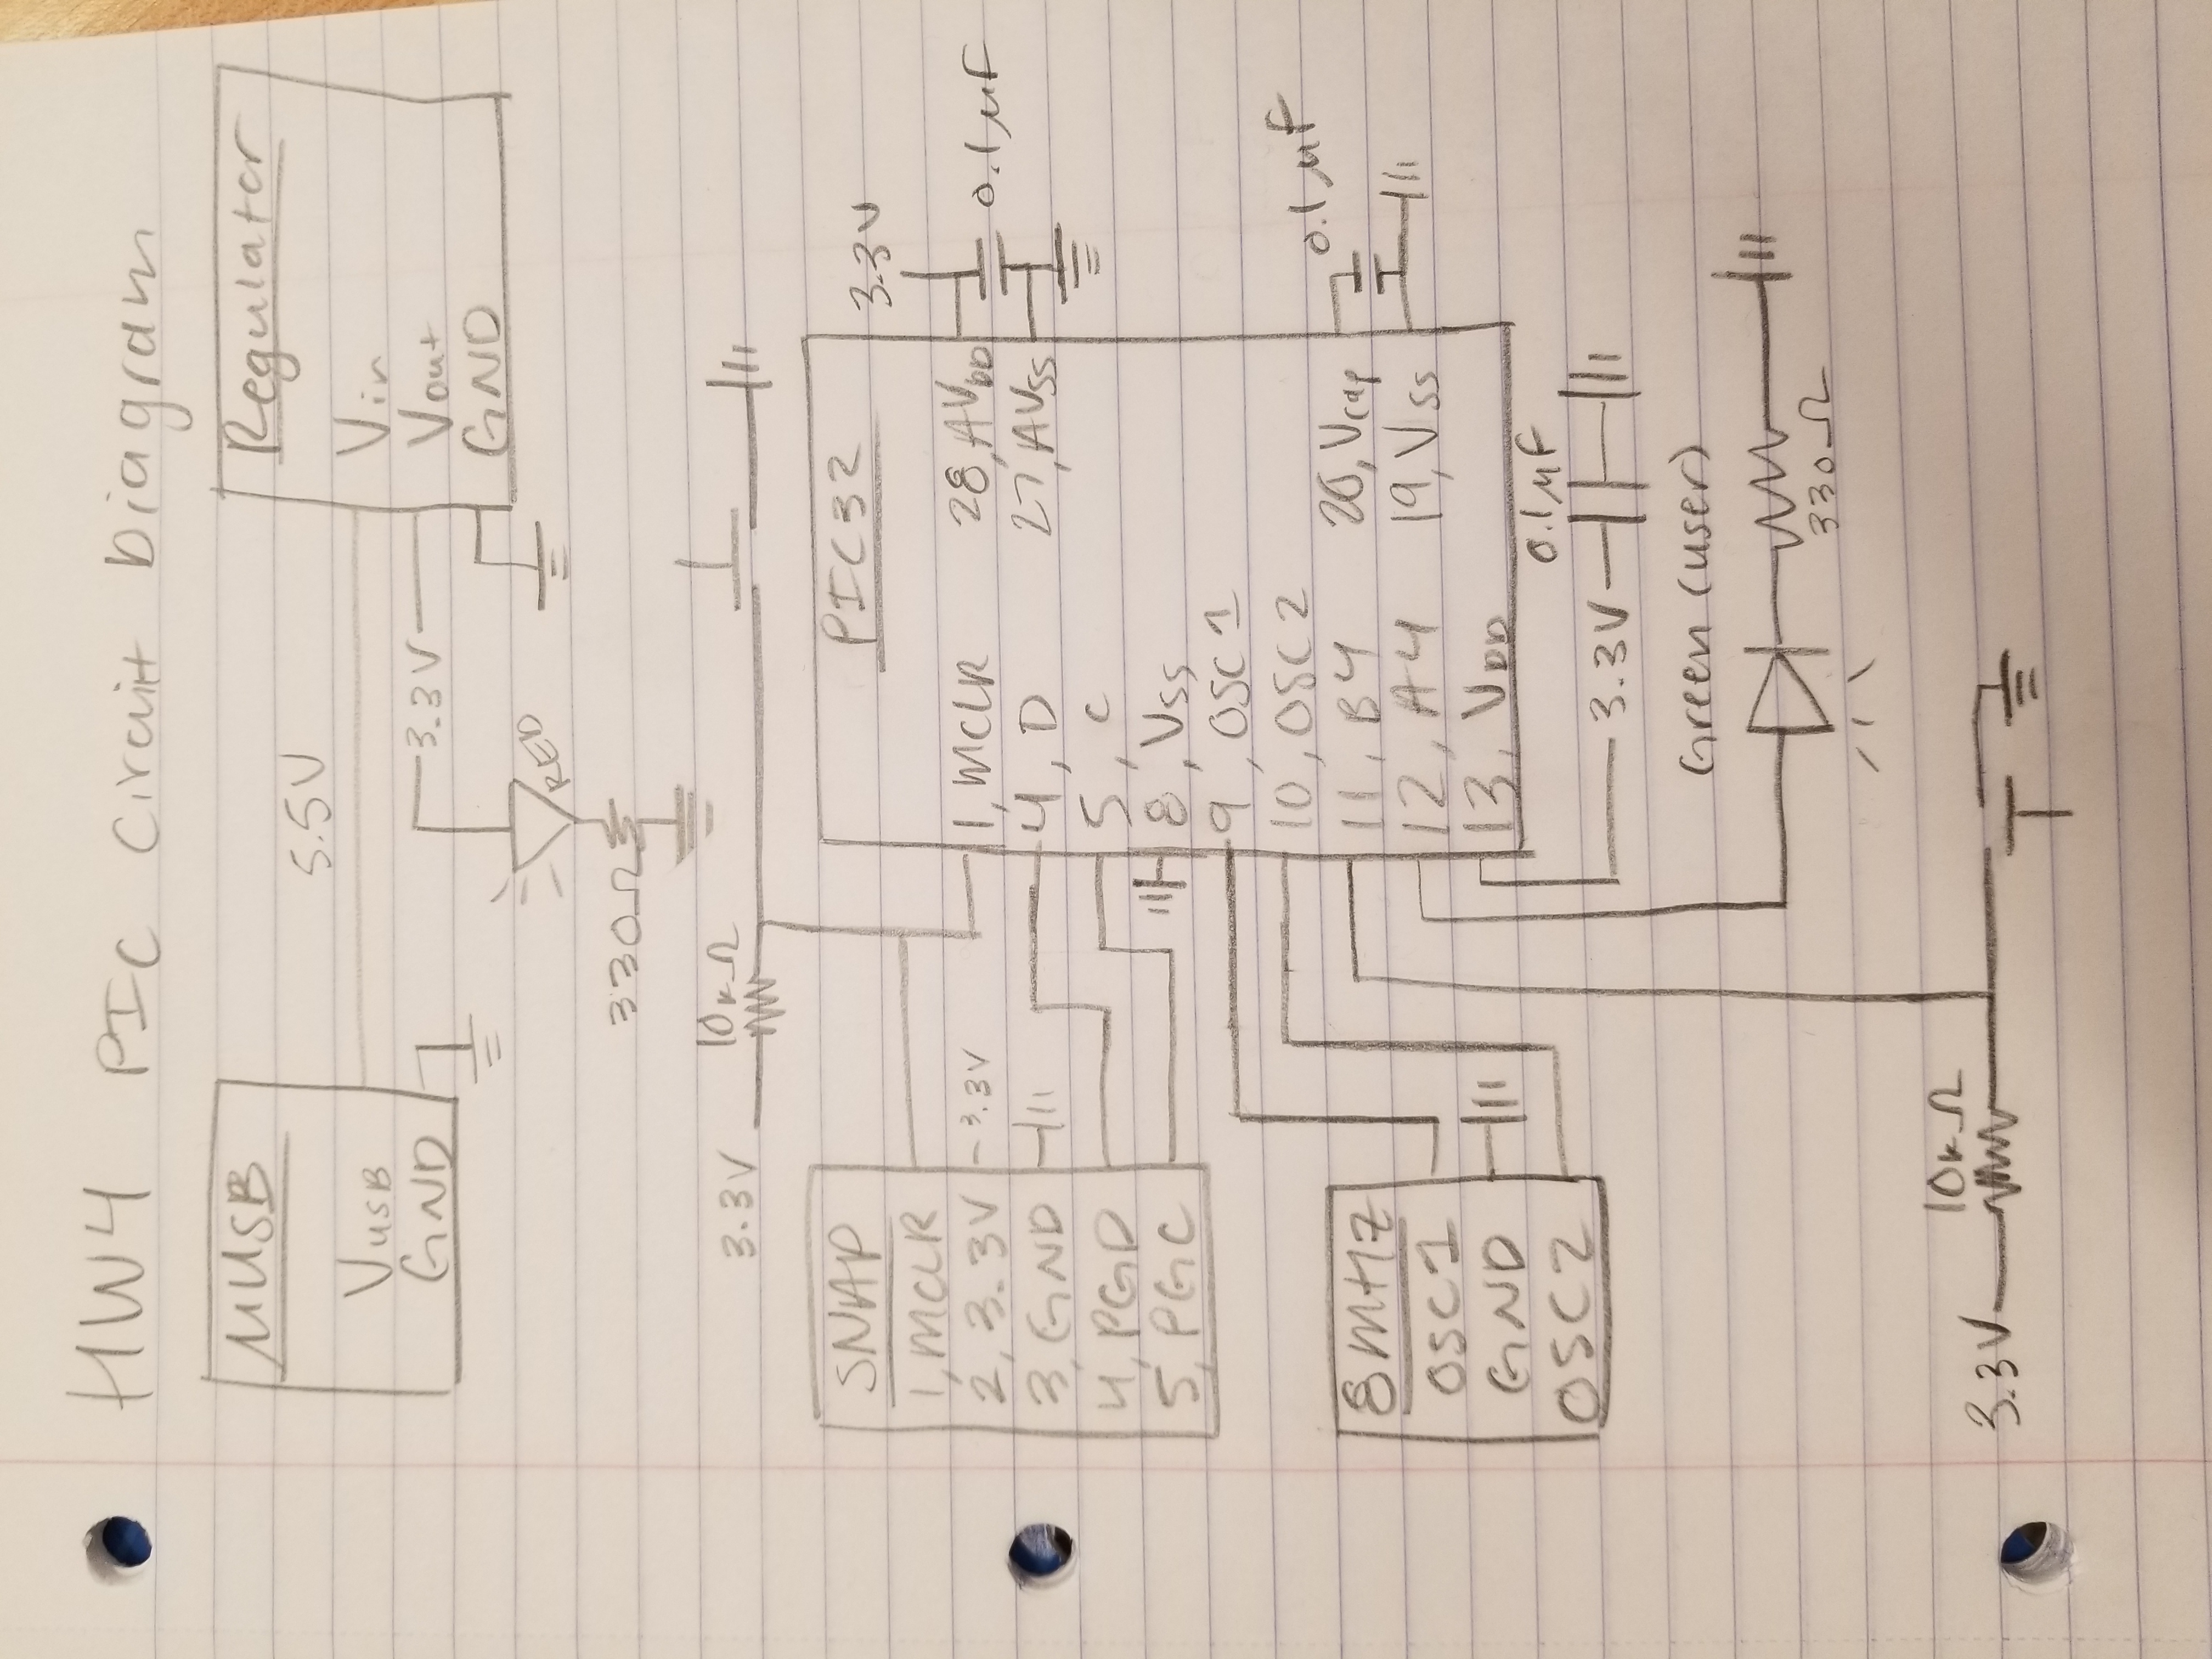 HW4 PIC Circuit Diagram
MUSB
VUSB
GND
5.5V
Regulator
Vin
Vout
GND
3.3V
RED
330Ω
3.3V
10kΩ
SNAP
1, MCLR
2, 3.3V
3, GND
4, PGD
5, PGC
3.3V
PIC32
1, MCLR
4, D
5, C
8, VSS
9, OSC1
10, OSC2
11, B4
12, A4
13, VDD
28, AVDD
27, AVSS
20, Vcap
19, VSS
3.3V
0.1μF
0.1μF
8MHZ
OSC1
GND
OSC2
0.1μF
3.3V
Green (user)
330Ω
10kΩ
3.3V